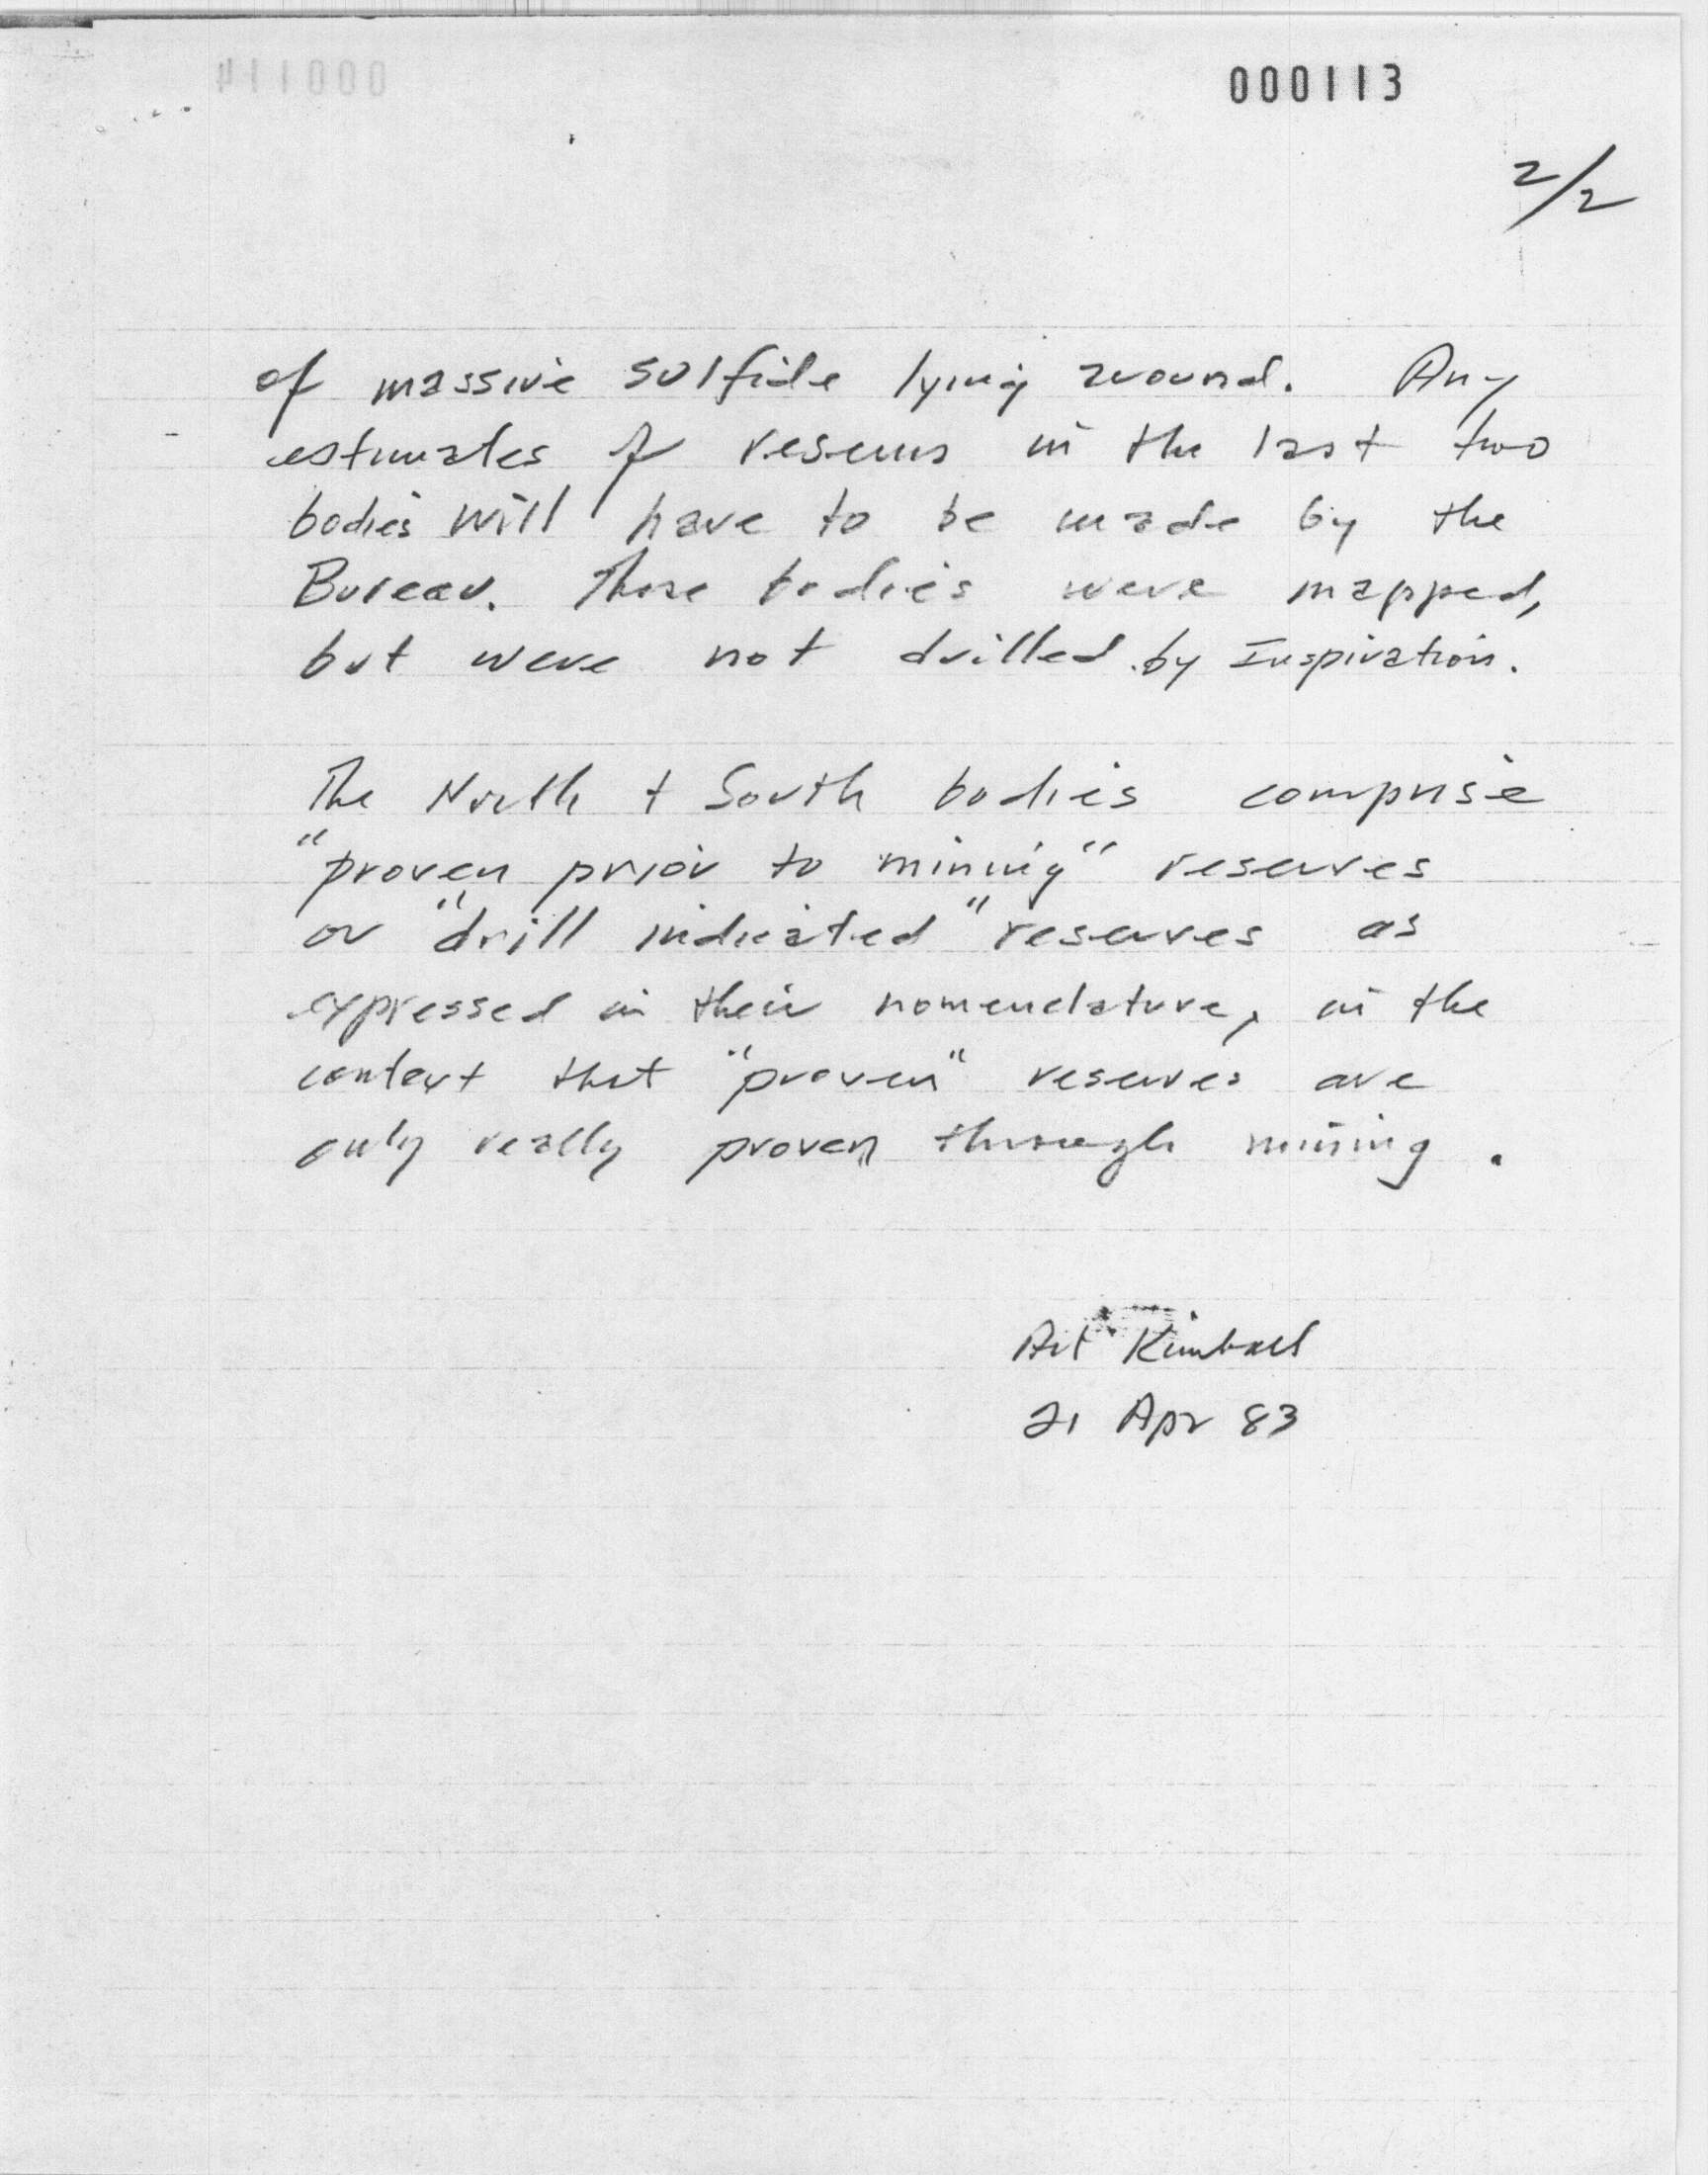 000113
2/2
of massive sulfide lying around. Any
estimates of reserves in the last two
bodies will have to be made by the
Bureau. These bodies were mapped,
but were not drilled by Inspiration.
The North + South bodies comprise
"proven prior to mining" reserves
or "drill indicated" reserves as
expressed in their nomenclature, in the
context that "proven" reserves are
only really proven through mining.
Art Kimball
21 Apr 83